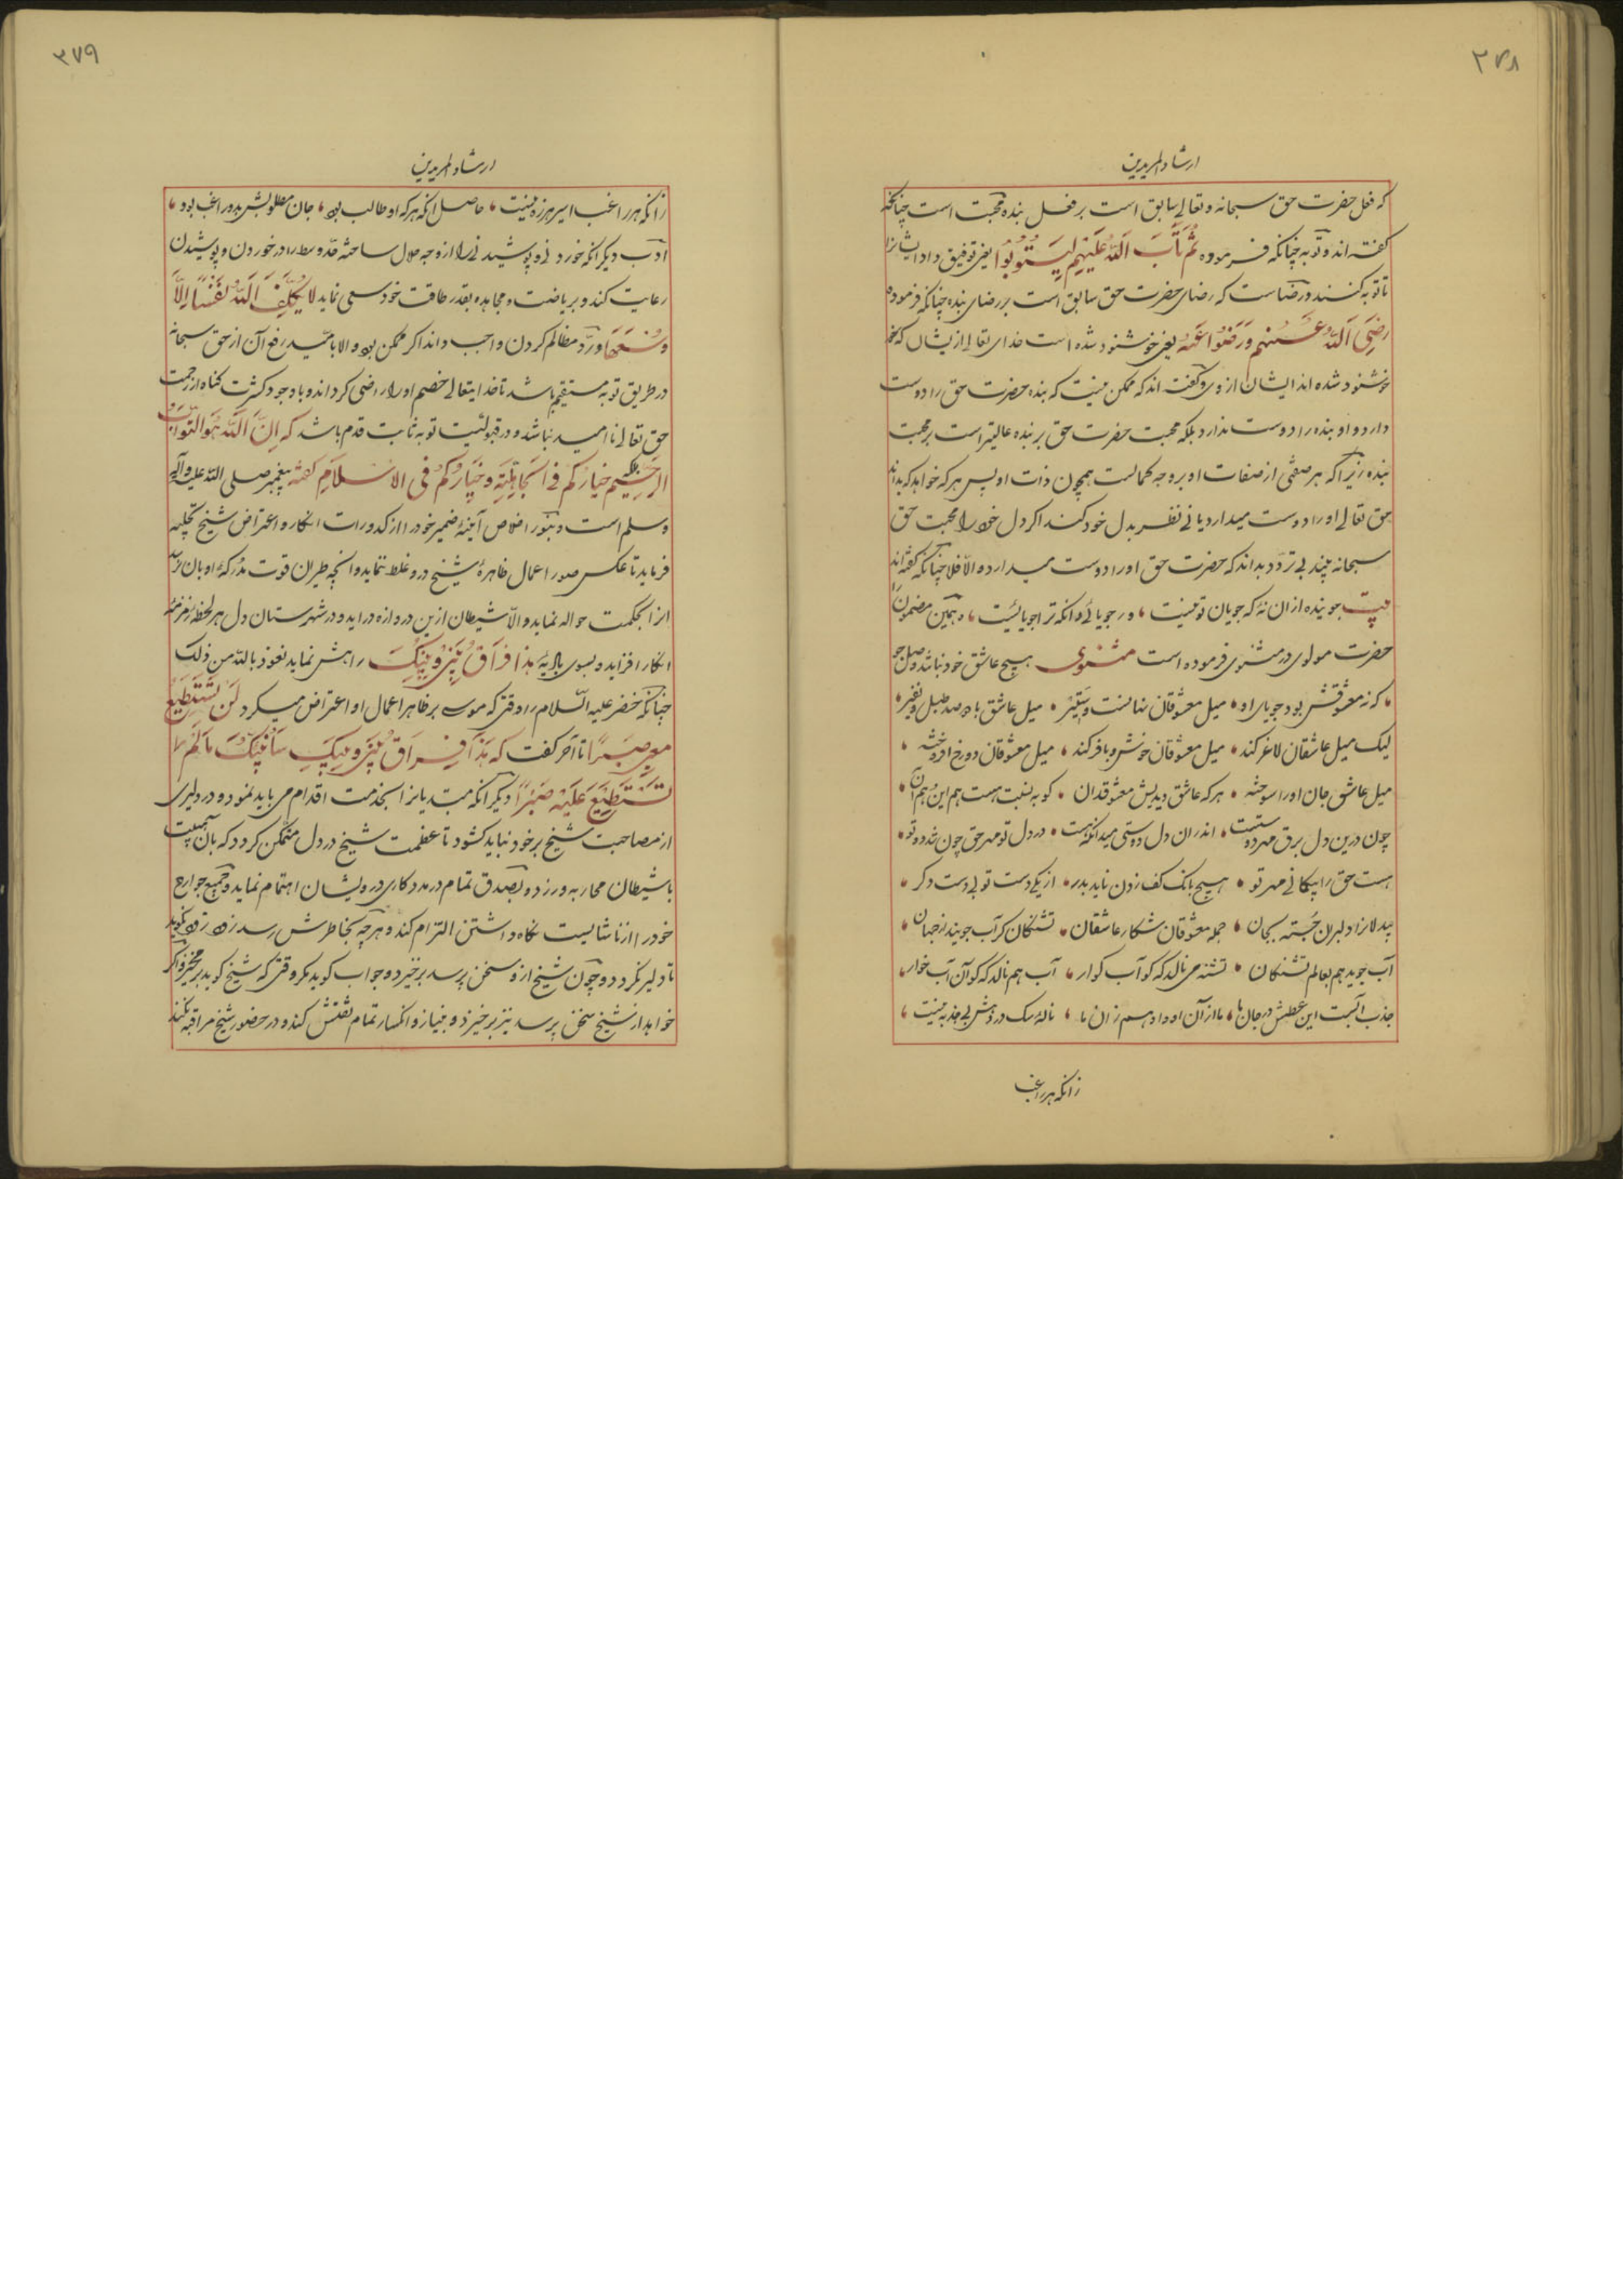 ۳۷۸
ارشاد المریدین
که فعل حضرت حق سبحانه و تعالی سابق است بر فعل بنده محبت است چنانکه
گفته اند و توبه چنانکه فرموده ثُمَّ تَابَ اَللّهُ عَلَیْهِم لِیَتُوبُوا یعنی توفیق داد ایشانرا
تا توبه کنند و رضاست که رضای حضرت حق سابق است بر رضای بنده چنانکه فرموده
رَضِیَ اَللّهُ عَنْهُم وَرَضُوا عَنْهُ یعنی خوشنود شده است خدای تعالی ازیشان که
خوشنود شده اند ایشان از وی و گفته اند که ممکن نیست که بنده حضرت حق را دوست
دارد و او بنده را دوست ندارد بلکه محبت حضرت حق بر بنده عالیتر است بر محبت
بنده زیرا که هر صفتی از صفات او بر وجه کمالست همچون ذات او پس هر که خواهد که بداند
حق تعالی او را دوست میدارد یا نی نظر بدل خود کند اگر دل خود را محبت حق
سبحانه بیند بی تردد بداند که حضرت حق او را دوست میدارد و الّا فلا چنانکه گفته اند
بیت جوینده از ان نهٔ که جویان تو نیست ، ور جویائی وانکه ترا جویائیست ، و همین مضمون را
حضرت مولوی در مثنوی فرموده است مثنوی هیچ عاشق خود نباشد وصل جو
، که نه معشوقش بود جویای او ، میل معشوقان نهانست و ستیر ، میل عاشق با دو صد طبل و نفیر ،
لیک میل عاشقان لاغر کند ، میل معشوقان خوش و با فر کند ، میل معشوقان دو رخ افروخته ،
میل عاشق جان او را سوخته ، هر که عاشق دیدیش معشوق دان ، کو به نسبت هست هم این و هم آن ،
چون درین دل برق مهر دوست جست ، اندر ان دل دوستی میدانکه هست ، در دل تو مهر حق چون شد دو تو ،
هست حق را بیگمانی مهر تو ، هیچ بانک کف زدن ناید بدر ، از یکی دست تو بی دست دگر ،
بیدلانرا دلبران جُسته بجان ، جمله معشوقان شکار عاشقان ، تشنگان گر آب جویند از جهان ،
آب جوید هم بعالم تشنگان ، تشنه می نالد که کو آب گوار ، آب هم نالد که کو آن آب خوار ،
جذب آبست این عطش در جان ما ، ما از آن او و او هم زان ما ، نالهٔ سک در رهش بی جذبه نیست ،
زانکه هر راغب
۳۷۹
ارشاد المریدین
زانکه هر راغب اسیر رهزنیست ، حاصل انکه هر که او طالب بود ، جان مطلوبش بدو راغب بود ،
ادب دیگر آنکه خوردنی و پوشیدنی را از وجه حلال ساخته حدّ وسط را در خوردن و پوشیدن
رعایت کند و بریاضت و مجاهده بقدر طاقت خود سعی نماید لا یُکَلِّفُ اَللّهُ نَفْسًا اِلَّا
وُسْعَهَا و ردّ مظالم کردن واجب داند اگر ممکن بود و الا بامّید رفع آن از حق سبحانه
در طریق توبه مستقیم باشد تا خدایتعالی خصم او را راضی گرداند و با وجود کثرت گناه از رحمت
حق تعالی ناامید نباشد و در قبولیّت توبه ثابت قدم باشد که اِنَّ اَللّهَ هُوَ التَّوَّابُ
الرَّحِیم خِیَارُکُم فی الجَاهِلِیَّةِ وَ خِیَارُکُم فی الاسْلَامِ گفته پیغمبر صلی اللّه علیه و آله
و سلم است و بنور اخلاص آینهٔ ضمیر خود را از کدورات انکار و اعتراض شیخ تجلیه
فرماید تا عکس صور اعمال ظاهرهٔ شیخ در و غلط ننماید و آنچه طیران قوت مُدرکهٔ او بان نرسد
انرا بحکمت حواله نماید و الّا شیطان ازین دروازه دراید و در شهرستان دل هر لحظه
انکار افزاید و بسوی بادیهٔ هذا فِرَاقُ بَیْنِی وَ بَیْنِکَ راهش نماید نعوذ باللّه من ذلک
چنانکه خضر علیه السّلام را وقتی که موسی بر ظاهر اعمال او اعتراض میکرد لَنْ تَسْتَطِیعَ
مَعِی صَبْرًا تا آخر گفت که هَذَا فِرَاقُ بَیْنِی وَ بَیْنِکَ سَاُنَبِّئُکَ مَا لَمْ
تَسْتَطِعْ عَلَیْهِ صَبْرًا دیگر آنکه مبتدیانرا بخدمت اقدام می باید نمود و در دلیری
از مصاحبت شیخ بر خود نباید کشود تا عظمت شیخ در دل متمکّن گردد که بان هیبت
با شیطان محاربه ورزد و بصدق تمام در مددکاری درویشان اهتمام نماید و جمیع جوارح
خود را از ناشایست نگاه داشتن التزام کند و هر چه بخاطرش رسد زود زود نگوید
تا دلیر نگردد و چون شیخ ازو سخن پرسد برخیزد و جواب گوید مگر وقتی که شیخ گوید برمخیز و اگر
خواهد از شیخ سخن پرسد نیز برخیزد و بنیاز و انکسار تمام تفتیش کند و در حضور شیخ مراقبه نکند